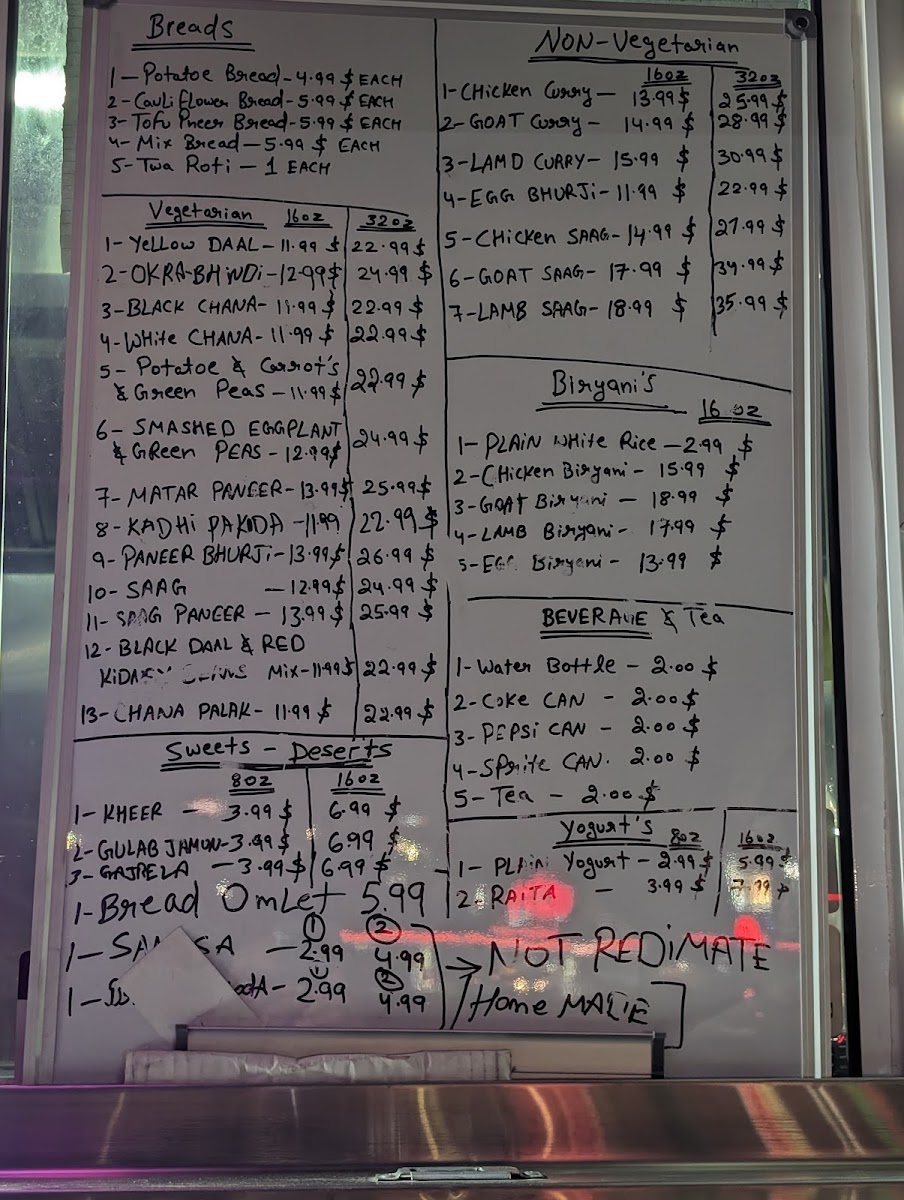 Breads
1-Potatoe Bread-4.99 $ EACH
2-Cauliflower Bread-5.99 $ EACH
3-Tofu Pneer Bread-5.99 $ EACH
4-Mix Bread-5.99 $ EACH
5-Twa Roti-1 EACH
Vegetarian 16oz 32oz
1-Yellow DAAL-11.99 $ 22.99 $
2-OKRA-BHiNDi-12.99$ 24.99 $
3-BLACK CHANA-11.99 $ 22.99 $
4-White CHANA-11.99 $ 22.99 $
5-Potatoe & Carrot's
& Green Peas-11.99$ 22.99 $
6-SMASHED EGGPLANT
& GReen PEAS-12.99$ 24.99 $
7-MATAR PANEER-13.99$ 25.99$
8-KADHI PAKODA-11.99 22.99 $
9-PANEER BHURJi-13.99$ 26.99 $
10-SAAG -12.99$ 24.99 $
11-SAAG PANEER-13.99$ 25.99 $
12-BLACK DAAL & RED
KiDNEY Mix-11.99$ 22.99 $
13-CHANA PALAK-11.99 $ 22.99 $
Sweets - Deserts
8oz 16oz
1-KHEER - 3.99 $ 6.99 $
2-GULAB JAMUN-3.99 $ 6.99 $
3-GAJRELA - 3.99 $ 6.99 $
1-Bread OmLet 5.99
1 2
1- -2.99 4.99
2
1- -2.99 4.99
NON-Vegetarian
16oz 32oz
1-CHicken Curry-13.99$ 25.99 $
2-GOAT Curry-14.99 $ 28.99 $
3-LAMD CURRY-15.99 $ 30.99 $
4-EGG BHURJi-11.99 $ 22.99 $
5-CHicken SAAG-14.99 $ 27.99 $
6-GOAT SAAG-17.99 $ 34.99 $
7-LAMB SAAG-18.99 $ 35.99 $
Biryani's
16 oz
1-PLAIN White Rice-2.99 $
2-CHicken Biryani-15.99 $
3-GOAT Biryani-18.99 $
4-LAMB Biryani-17.99 $
5-EGG Biryani-13.99 $
BEVERAGE & Tea
1-Water Bottle-2.00 $
2-Coke CAN-2.00 $
3-PEPSI CAN-2.00 $
4-SPrite CAN.2.00 $
5-Tea-2.00 $
Yogurt's 8oz 16oz
1-PLAIN Yogurt-2.99 $ 5.99 $
2-RAITA - 3.99 $
NOT REDIMATE
Home MADE